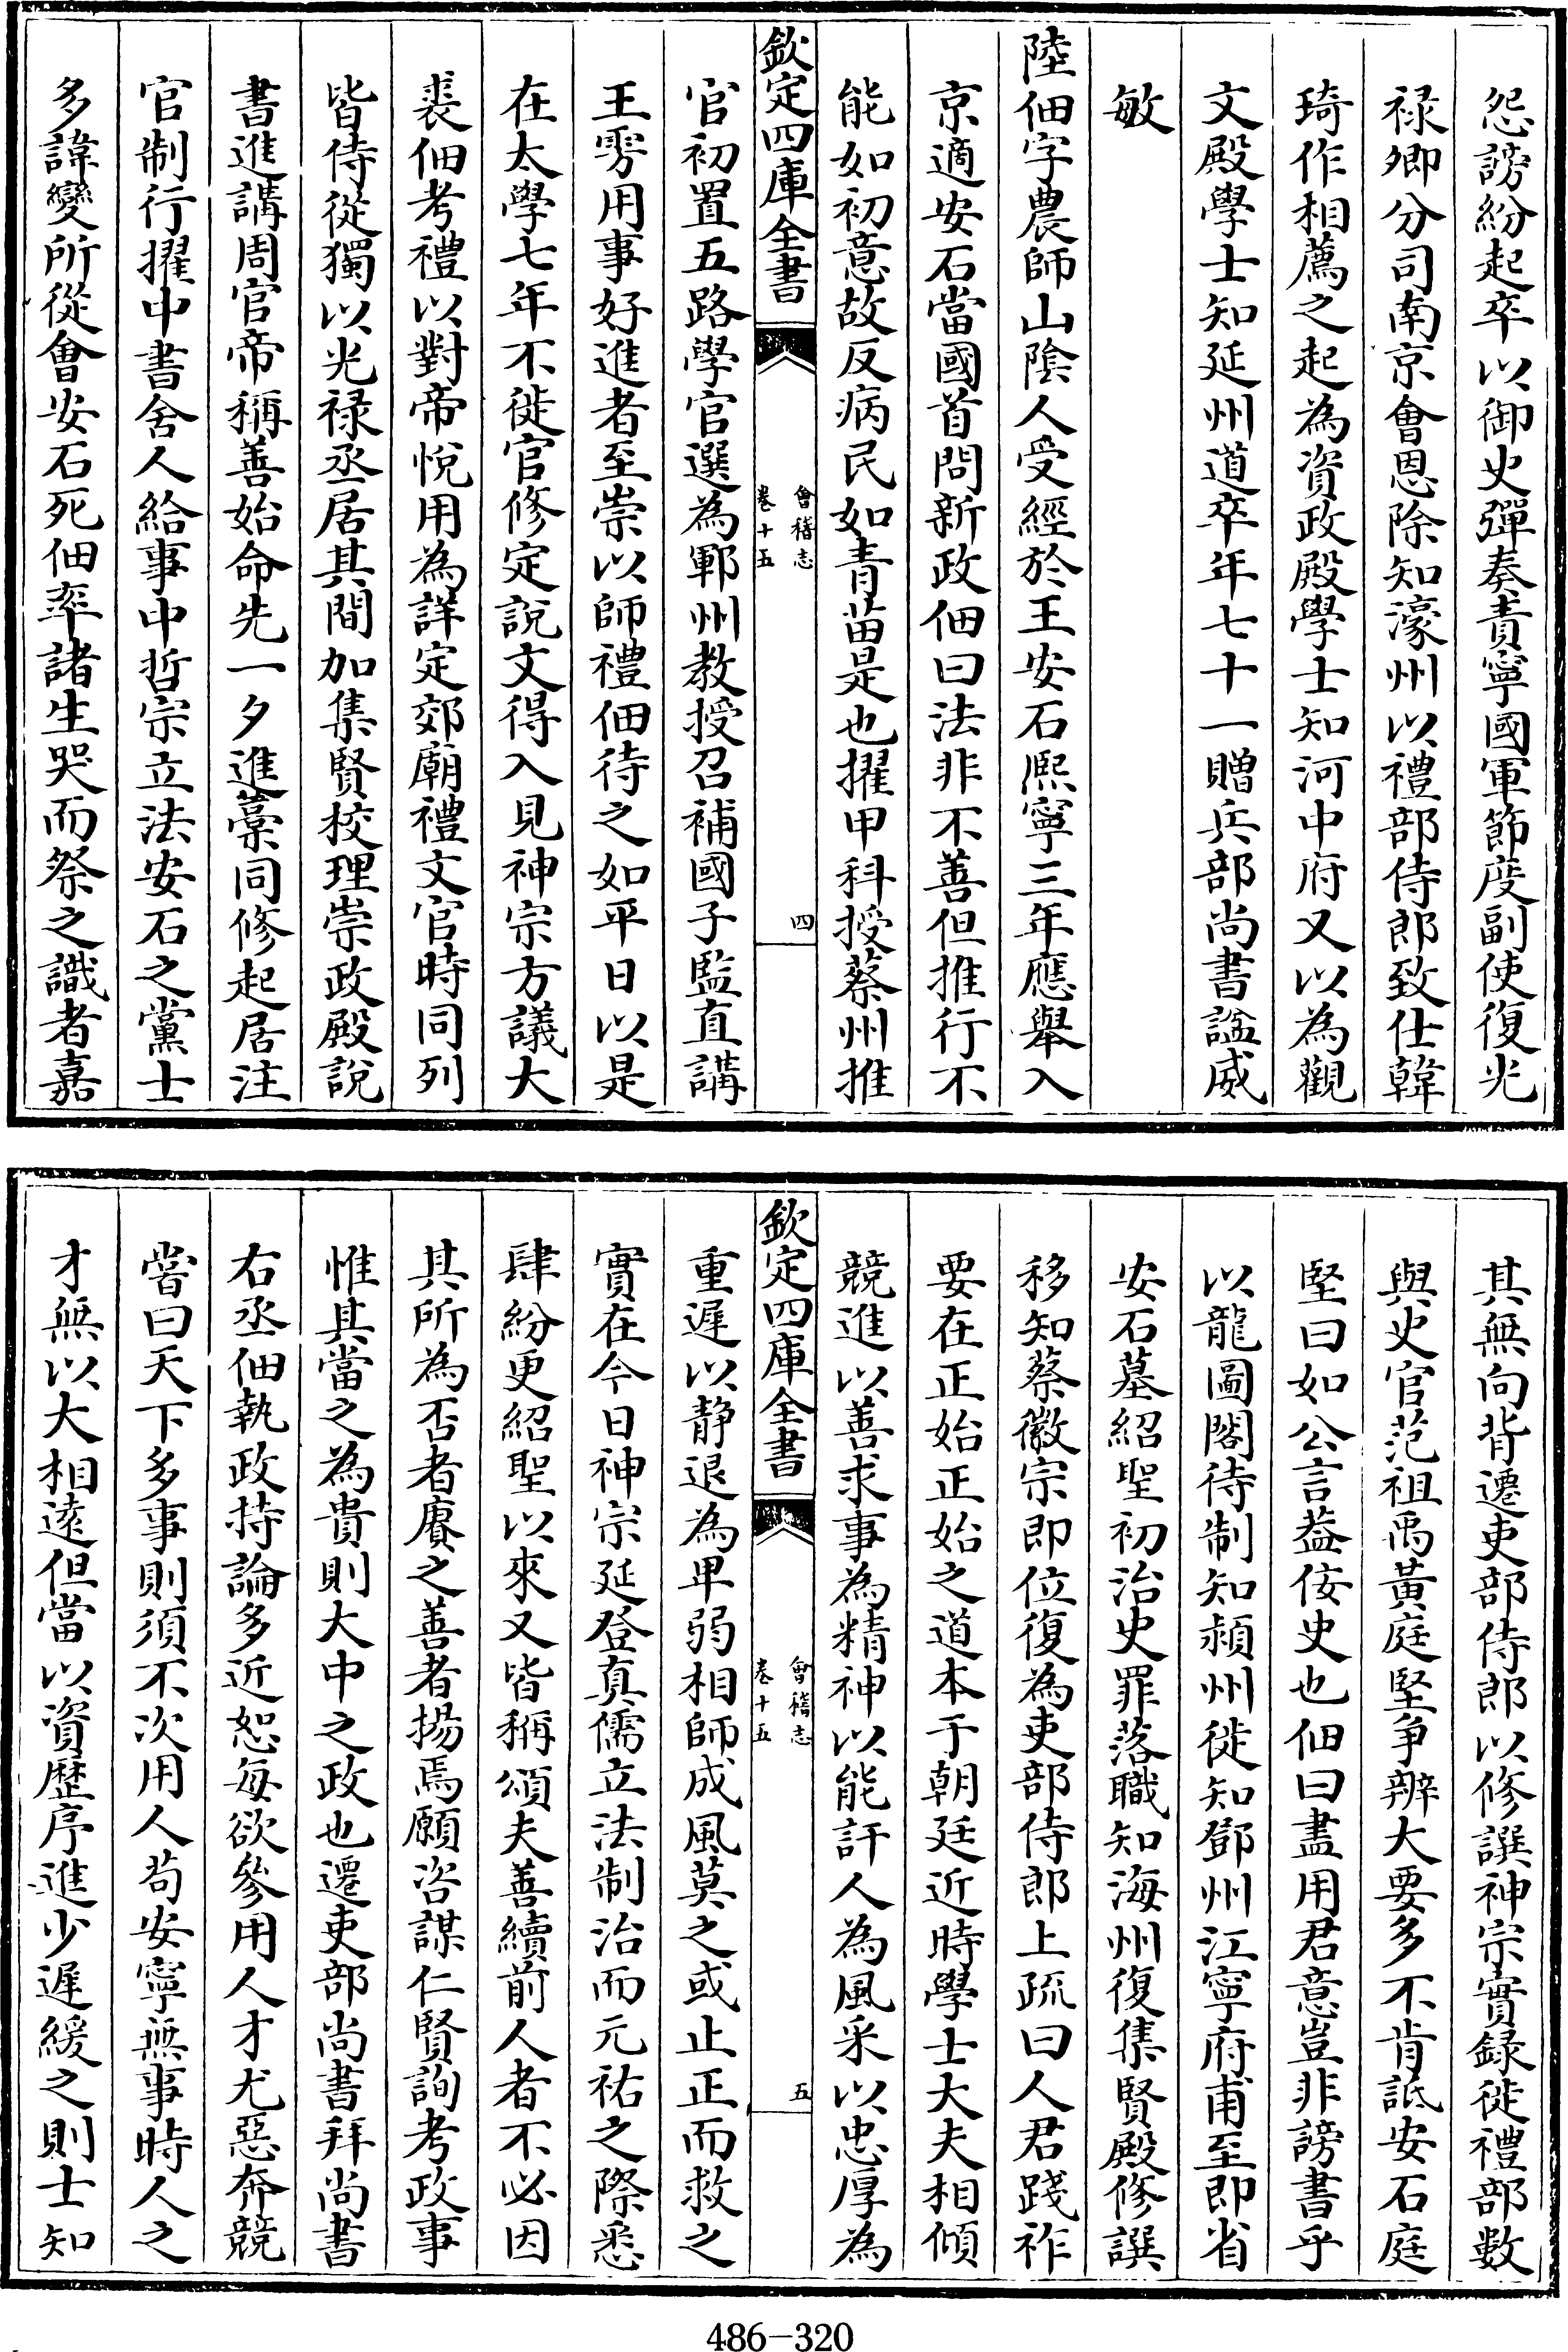 怨謗紛起卒以御史彈奏責寧國軍節度副使復光
禄卿分司南京會恩除知濠州以禮部侍郎致仕韓
琦作相薦之起為資政殿學士知河中府又以為觀
文殿學士知延州道卒年七十一贈兵部尚書諡威
敏
陸佃字農師山隂人受經於王安石熈寧三年應舉入
京適安石當國首問新政佃曰法非不善但推行不
能如初意故反病民如青苗是也擢甲科授蔡州推
欽定四庫全書
會稽志
卷十五
四
官初置五路學官選為鄆州教授召補國子監直講
王雱用事好進者至崇以師禮佃待之如平日以是
在太學七年不徙官修定說文得入見神宗方議大
裘佃考禮以對帝悅用為詳定郊廟禮文官時同列
皆侍從獨以光禄丞居其間加集賢校理崇政殿說
書進講周官帝稱善始命先一夕進藳同修起居注
官制行擢中書舍人給事中哲宗立法安石之黨士
多諱變所從會安石死佃率諸生哭而祭之識者嘉
其無向背遷吏部侍郎以修譔神宗實録徙禮部數
與史官范祖禹黃庭堅爭辨大要多不肯詆安石庭
堅曰如公言葢佞史也佃曰盡用君意豈非謗書乎
以龍圖閣待制知潁州徙知鄧州江寧府甫至即省
安石墓紹聖初治史罪落職知海州復集賢殿修譔
移知蔡徽宗即位復為吏部侍郎上疏曰人君踐祚
要在正始正始之道本于朝廷近時學士大夫相傾
競進以善求事為精神以能訐人為風采以忠厚為
欽定四庫全書
會稽志
卷十五
五
重遲以静退為卑弱相師成風莫之或止正而救之
實在今日神宗延登真儒立法制治而元祐之際悉
肆紛更紹聖以來又皆稱頌夫善續前人者不必因
其所為否者賡之善者揚焉願咨謀仁賢詢考政事
惟其當之為貴則大中之政也遷吏部尚書拜尚書
右丞佃執政持論多近恕每欲參用人才尤惡奔競
嘗曰天下多事則須不次用人茍安寧無事時人之
才無以大相逺但當以資歷序進少遲緩之則士知
486-320